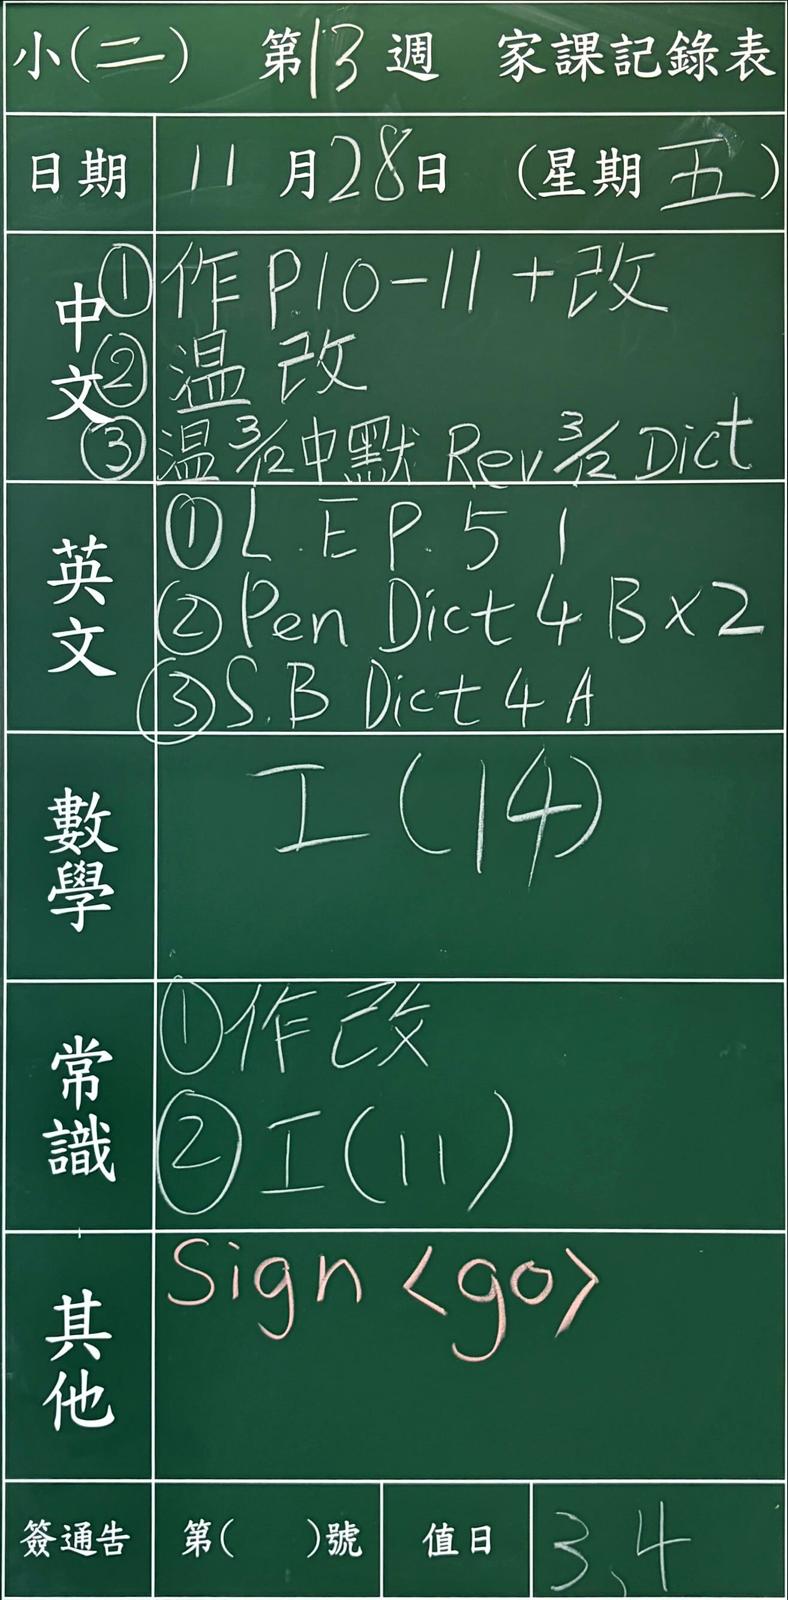 小(二) 第13週 家課記錄表
日期 11月28日 (星期五)
中文
①作P10-11+改
②温改
③温3/12中默 Rev 3/12 Dict
英文
①L.E P.51
②Pen Dict 4B×2
③S.B Dict 4A
數學
I(14)
常識
①作改
②I(11)
其他
Sign <go>
簽通告 第( )號 值日 3、4